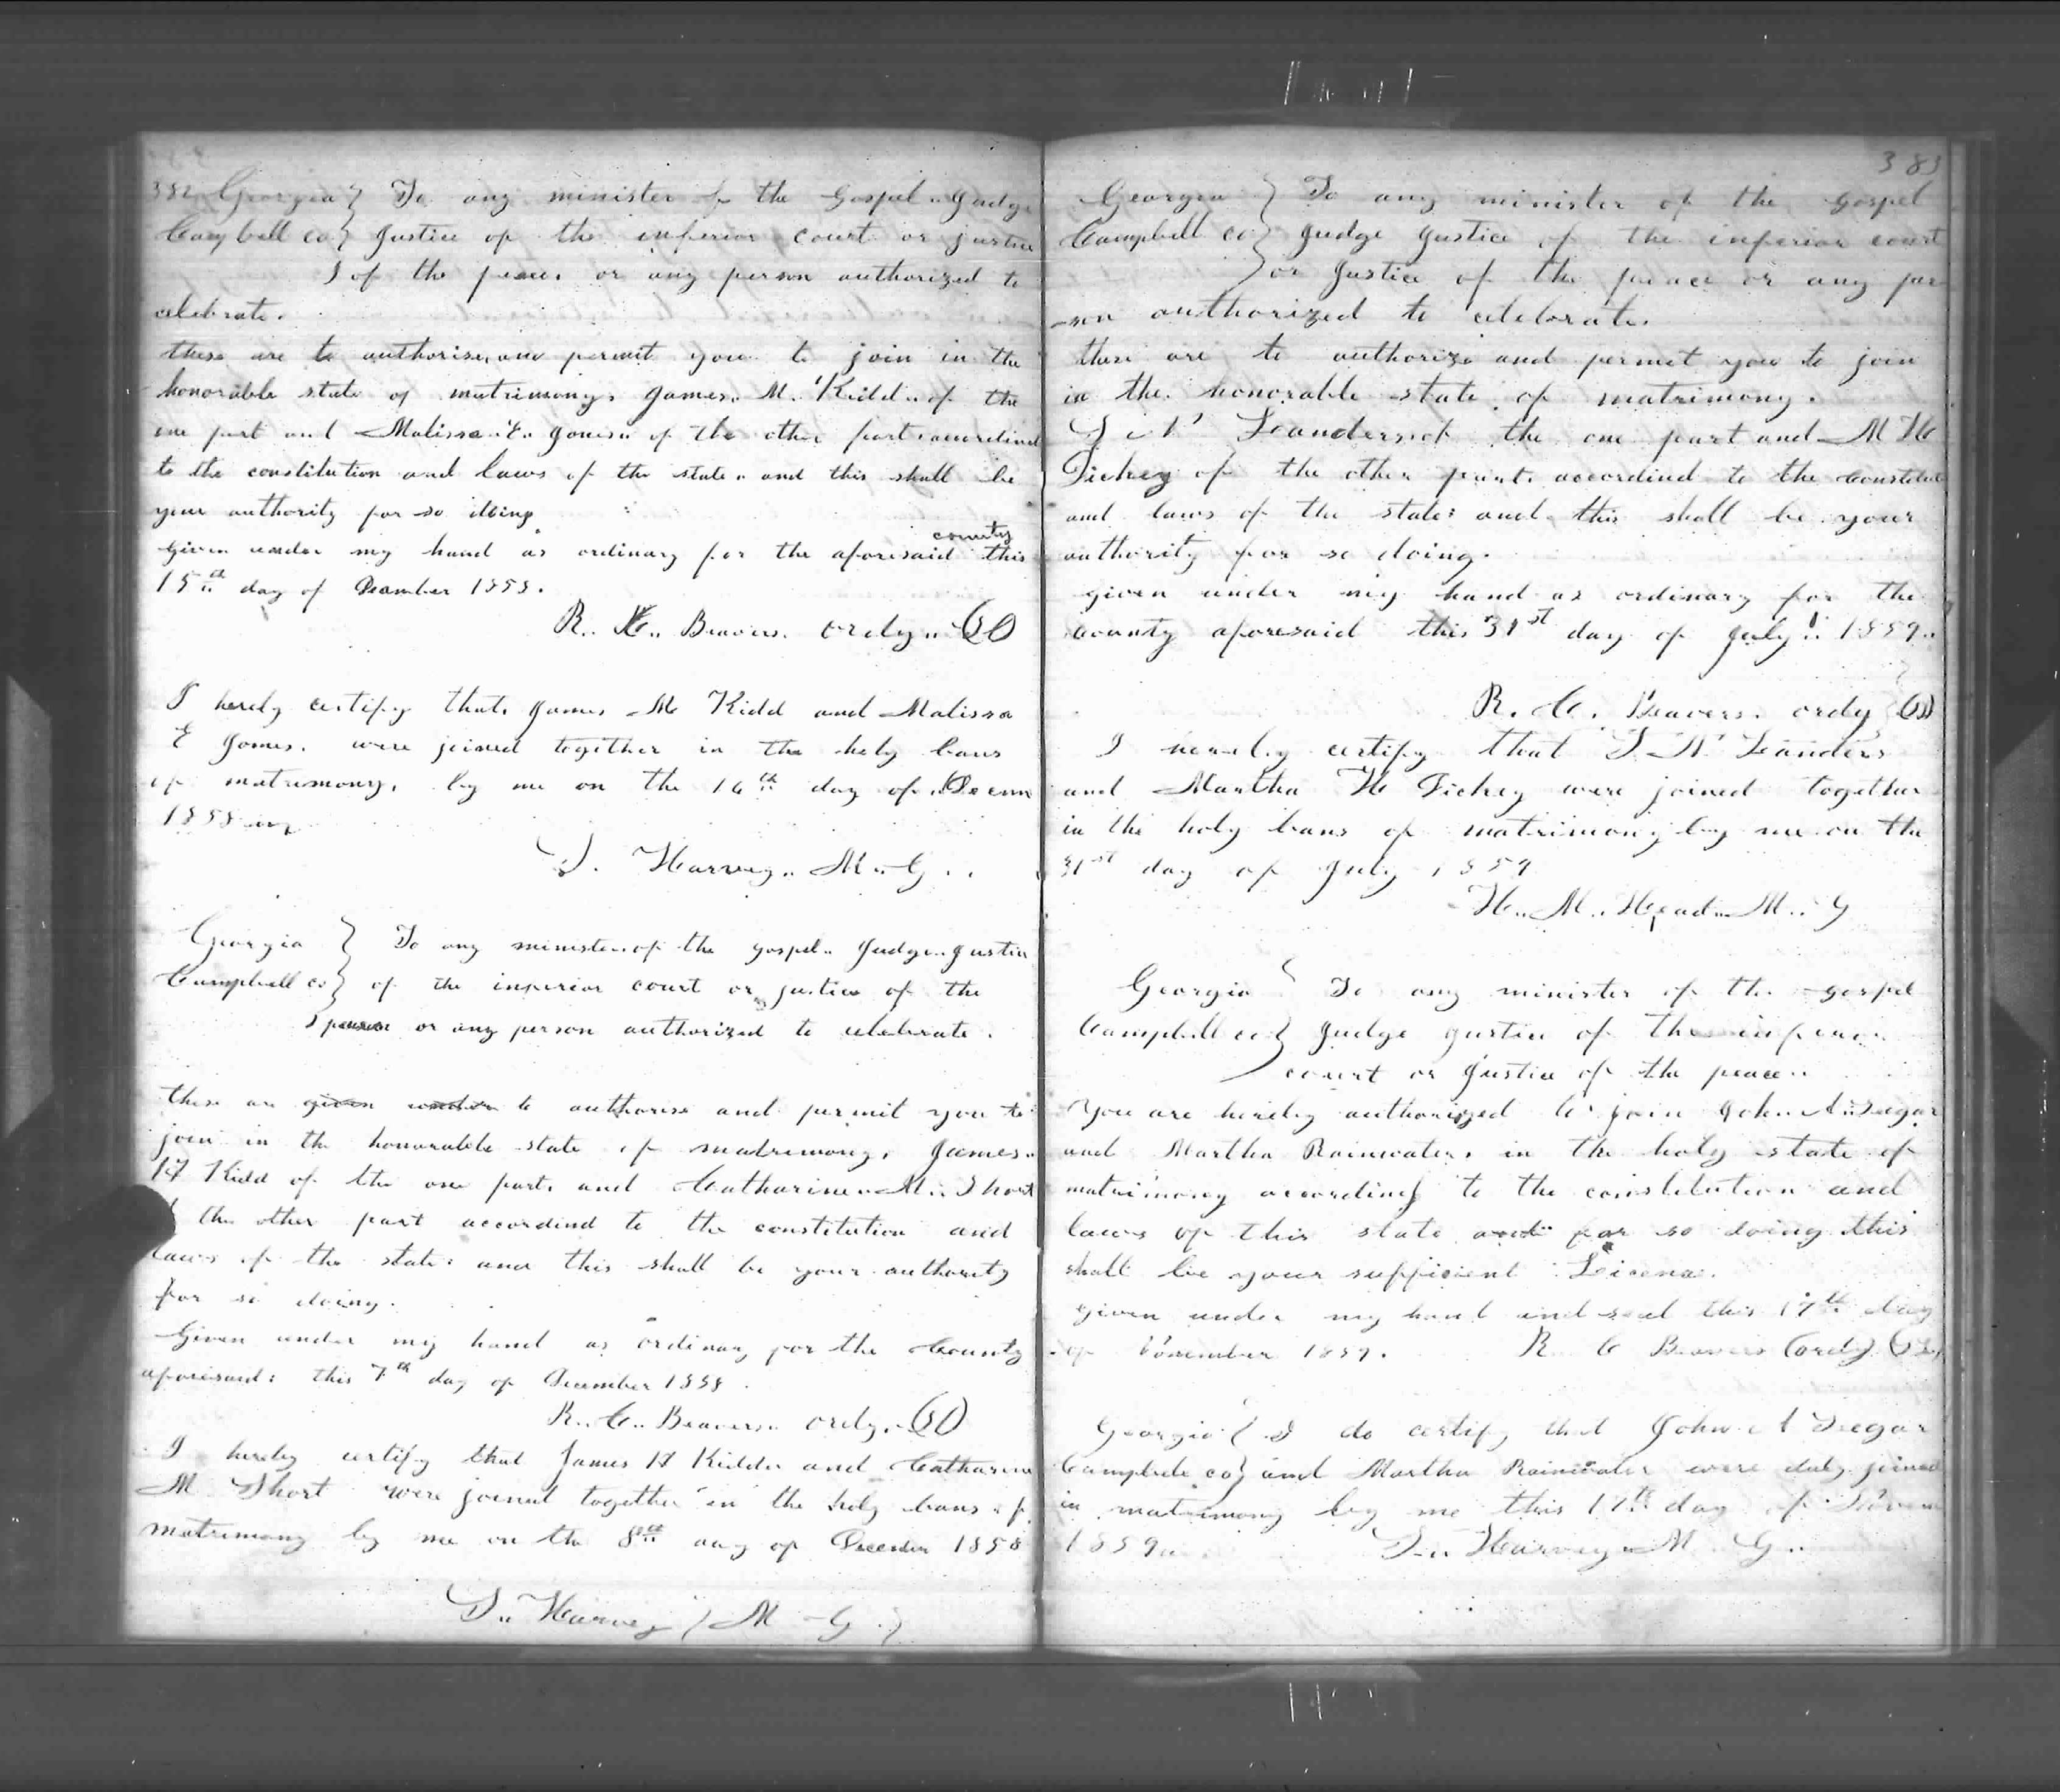 382 Georgia } To any minister of the Gospel.. Judge
Campbell co } Justice of the inferior court or justice
} of the peace or any person authorized to
celebrate.
these are to authorise and permit you to join in the
honorable state of matrimony, James. M. Kidd.. of the
one part and Malissa. E. Jones.. of the other part accordind
to the constitution and laws of the state.. and this shall be
your authority for so doing
given under my hand as ordinary for the aforesaid county this
15th day of December 1858.
R.. C.. Beavers. ordy..
I hereby certify that James M Kidd and Malissa
E Jones. were joined together in the holy bans
of matrimony, by me on the 16th day of Decem
1858
S. Harvey.. M.. G..
Georgia } To any minister of the gospel.. Judge.. Justice
Campbell co } of the inferior court or justice of the
or any person authorized to celebrate.
these are given under to authorise and permit you to
join in the honorable state of matrimony, James..
H Kidd of the one part, and Catharine.. M.. Short
the other part accordind to the constitution and
laws of the state: and this shall be your authority
for so doing.
Given under my hand as ordinary for the County
aforesaid: this 7th day of December 1858.
R.. C.. Beavers.. ordy.
I hereby certify that James H Kidd and Catharine
M Short were joined together in the holy bans of
matrimony by me on the 8th day of December 1858
S.. Harvey } M G }
383
Georgia } To any minister of the Gospel
Campbell co } Judge Justice of the inferior court
} or Justice of the peace or any per
-son authorized to celebrate.
these are to authorize and permit you to join
in the honorable state of matrimony.
Landers of the one part and M H
Dickey of the other part. accordind to the
and laws of the state: and this shall be your
authority for so doing.
given under my hand as ordinary for the
county aforesaid this 31st day of July 1859..
R. C. Beavers. ordy
I hereby certify that Landers
and Martha H Dickey were joined together
in the holy bans of matrimony by me on the
31st day of July 1859
H.. M.. Head.. M.. G
Georgia } To any minister of the gospel
Campbell co } Judge Justice of the
court or Justice of the peace..
You are hereby authorized to join John A.
and Martha Rainwater, in the holy state of
matrimony according to the constitution and
laws of this state and for so doing this
shall be your sufficient License.
given under my hand and seal this 17th day
of November 1859. R C Beavers (ordy)
Georgia } I do certify that John A
Campbell co } and Martha Rainwater were duly joined
in matrimony by me this 17th day of Novem
1859.. S.. Harvey.. M G..